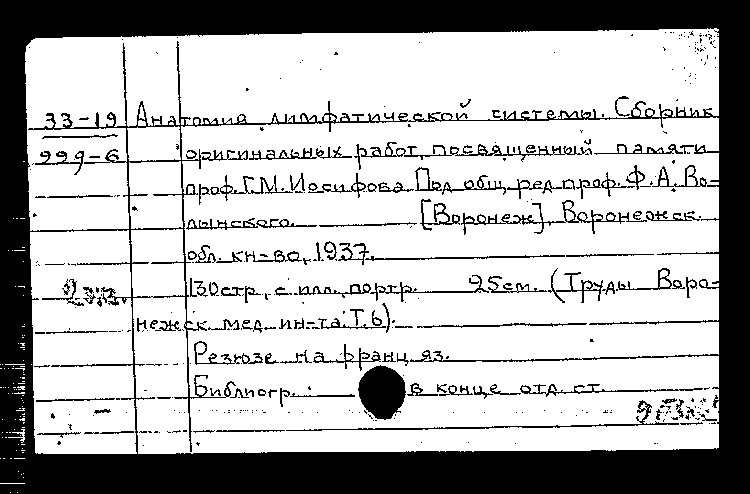 33-19 Анатомия лимфатической системы. Сборник
999-6 оригинальных работ, посвященный памяти
проф. Г.М. Иосифова. Под общ. ред. проф. Ф.А. Во-
лынского. [Воронеж], Воронежск.
обл. кн-во, 1937.
130стр., с илл., портр. 25см. (Труды Воро-
нежск. мед. ин-та. Т. 6).
Резюзе на франц. яз.
Библиогр. : в конце отд. ст.